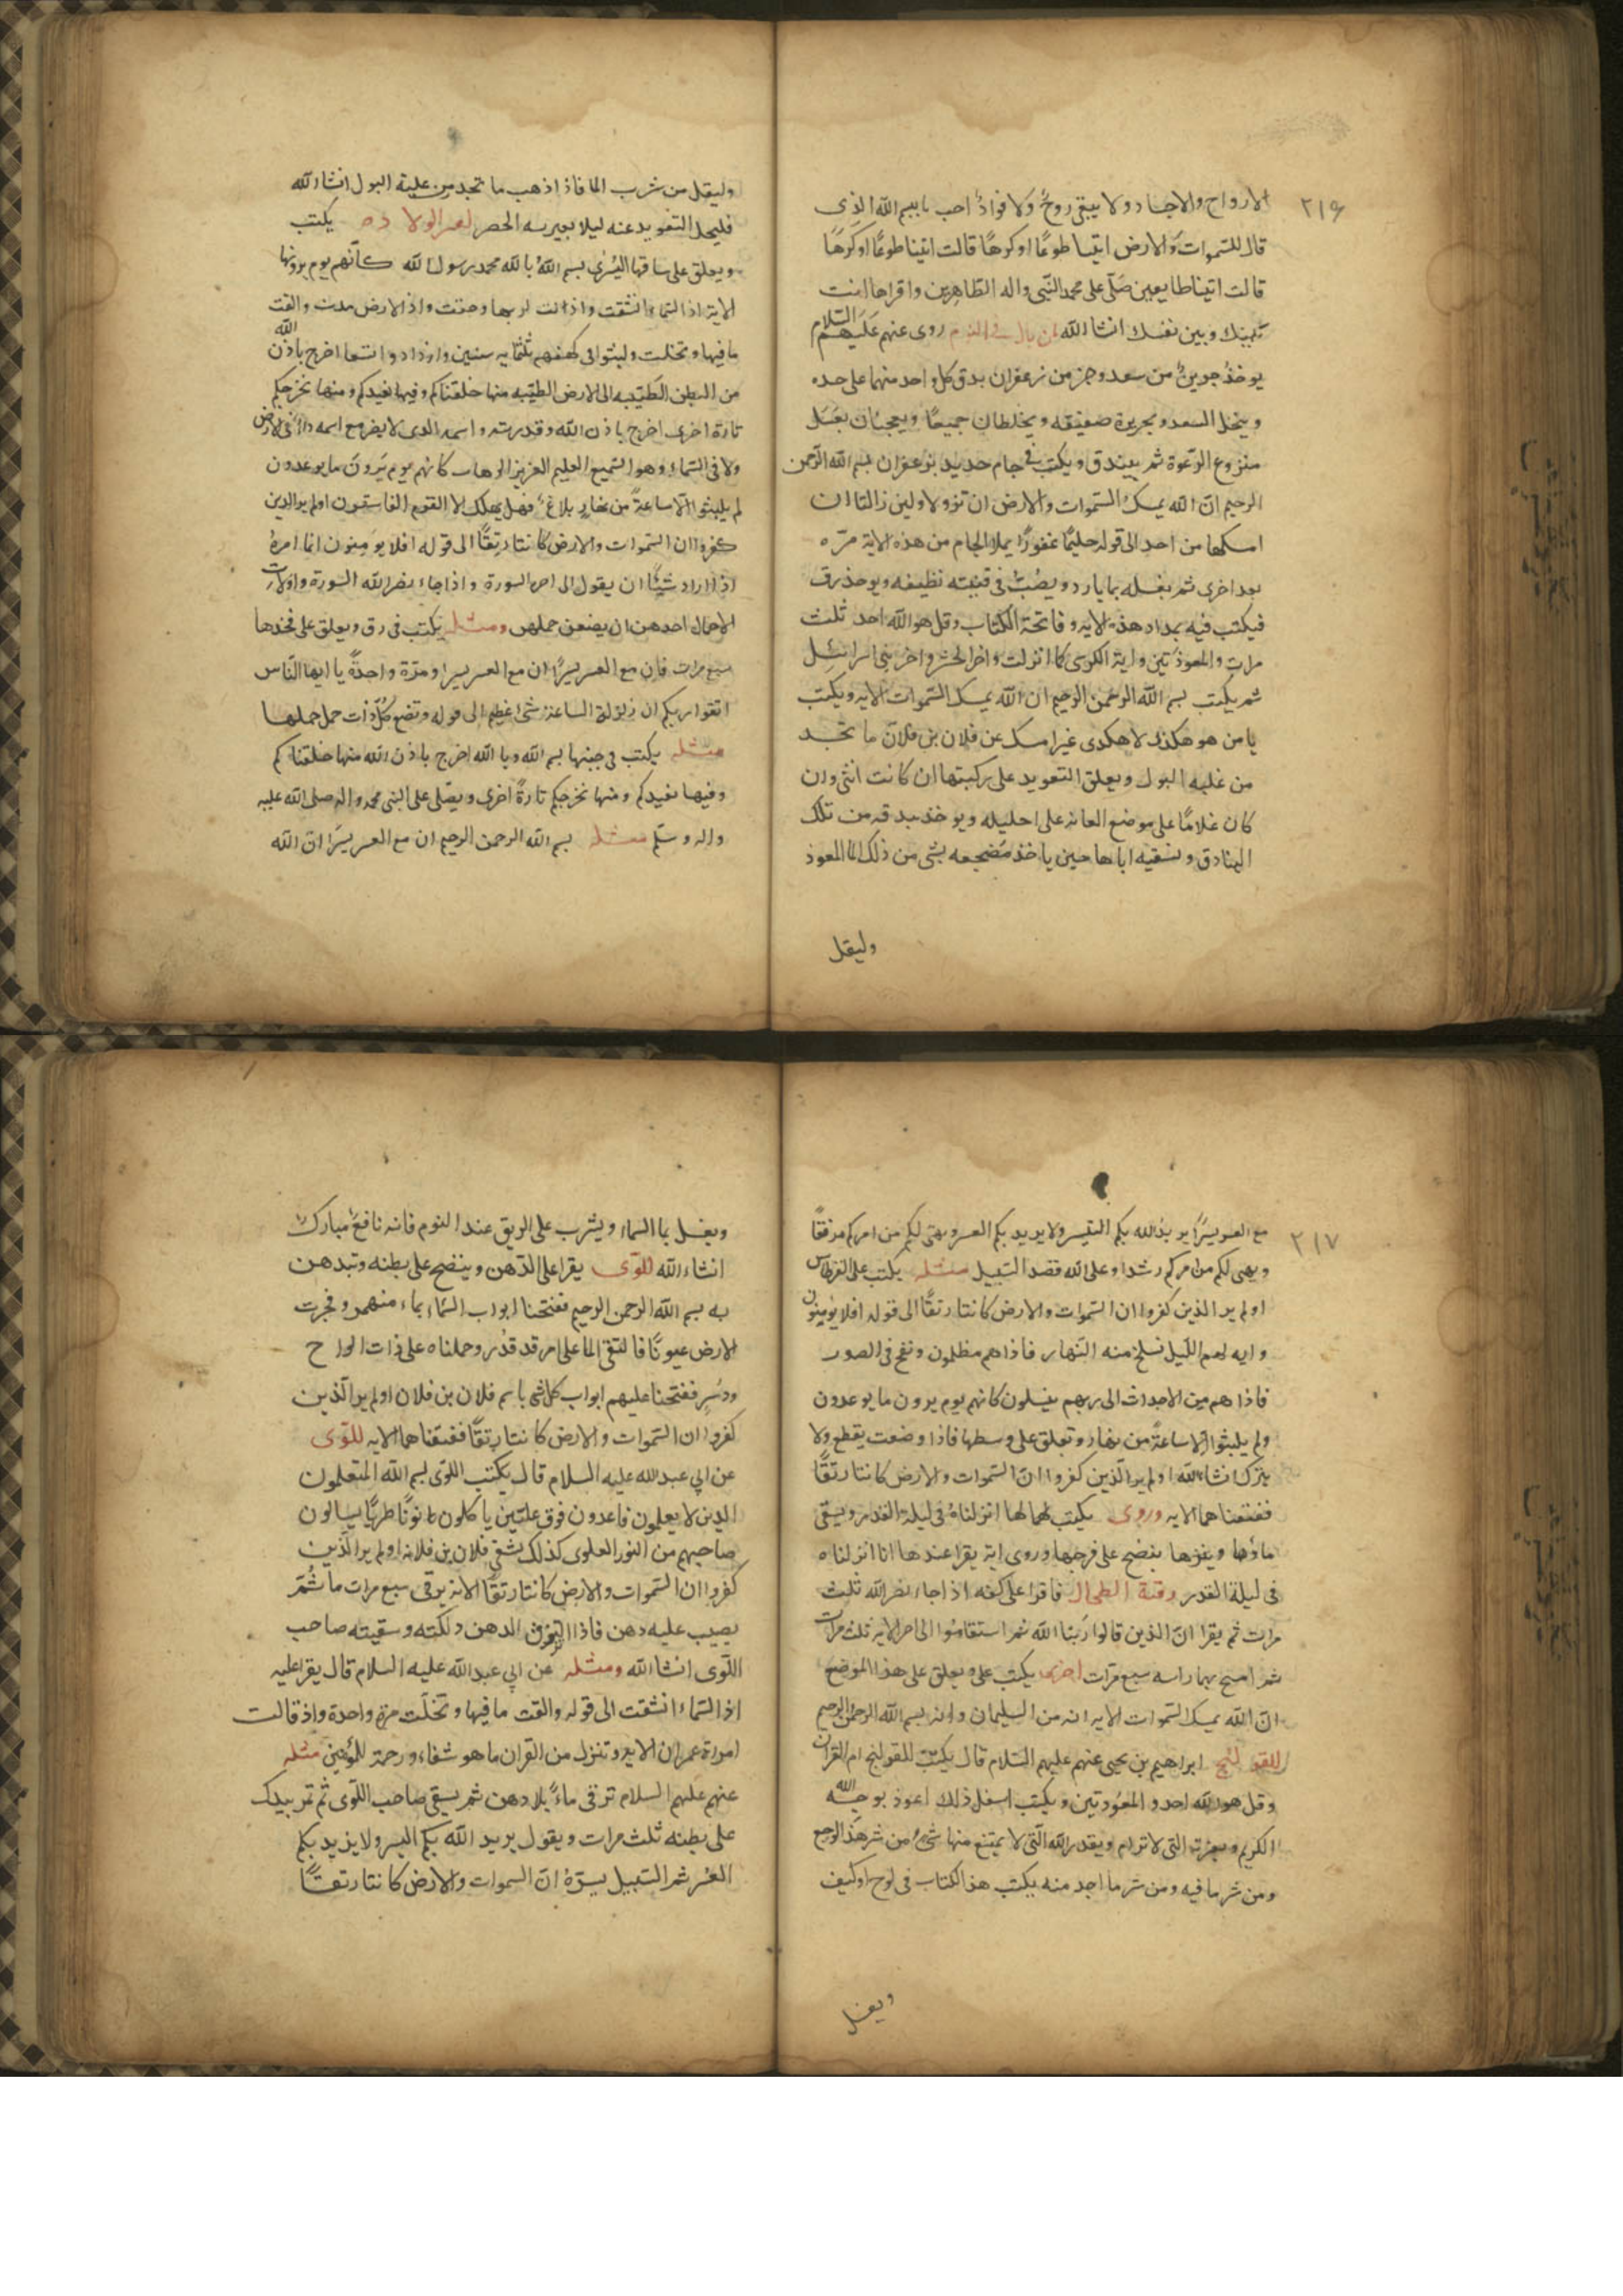 ٢١٦
الارواح والاجساد ولا يبقى روح ولا فواد احب باسم الله الذى
قال للسموات والارض ائتيا طوعًا او كرهًا قالت اتينا طوعًا او كرهًا
قالت اتينا طايعين صلّ على محمد النبى واله الطاهرين واقراها انت
بينك وبين نفسك انشا الله لمن بال فى النوم روى عنهم عليهم السلام
يوخذ جزئين من سعد وجز من زعفران يدق كل واحد منهما على حده
وينخل السعد بحريرة صفيقه ويخلطان جميعًا ويعجنان بعسل
منزوع الرغوة ثم يبندق ويكتب فى جام حديد بزعفران بسم الله الرحمن
الرحيم ان الله يمسك السموات والارض ان تزولا ولين زالتا ان
امسكهما من احد الى قوله حليمًا غفورًا يملا الجام من هذه الاية مرّه
بعد اخرى ثم يغسله بما بارد ويصب فى قنينه نظيفه ويوخذ رق
فيكتب فيه بمداد هذه الايه وفاتحة الكتاب وقل هو الله احد ثلث
مرات والمعوذتين واية الكرسى كما انزلت واخر الحشر واخر بنى اسرائيل
ثم يكتب بسم الله الرحمن الرحيم ان الله يمسك السموات الايه ويكتب
يا من هو هكذا لا هكذى غيره امسك عن فلان بن فلان ما تجد
من غلبه البول ويعلق التعويد على ركبتها ان كانت انثى وان
كان غلامًا على موضع العانه على احليله ويوخذ بندقه من تلك
البنادق وتسقيه اياها حين ياخذ مضجعه بشى من ذلك الما المعوذ
وليقل
وليقل من شرب الما فاذا ذهب ما تجد من غلبة البول انشا الله
فليحل التعويد عنه ليلا يعيريه الحصر لعسر الولادة يكتب
ويعلق على ساقها اليسرى بسم الله بالله محمد رسول الله كانهم يوم يرونها
الاية اذا السماء انشقت واذنت لربها وحقت واذا الارض مدت والقت
ما فيها وتخلت ولبثوا فى كهفهم ثلثمايه سنين وازدادوا تسعا اخرج باذن الله
من البطن الطيبه الى الارض الطيبه منها خلقناكم وفيها نعيدكم ومنها نخرجكم
تارة اخرى اخرج باذن الله وقدرته واسمه الذى لا يضر مع اسمه داء فى الارض
ولا فى السماء وهو السميع العليم العزيز الوهاب كانهم يوم يرون ما يوعدون
لم يلبثوا الا ساعة من نهار بلاغ فهل يهلك الا القوم الفاسقون اولم ير الذين
كفروا ان السموات والارض كانتا رتقًا الى قوله افلا يومنون انما امره
اذا اراد شيئًا ان يقول الى اخره السورة واذا جاء نصر الله السورة واولات
الاحمال اجلهن ان يضعن حملهن ومثله يكتب فى رق ويعلق على فخذها
سبع مرات فان مع العسر يسرًا ان مع العسر يسرا ومرّة واحدةً يا ايها الناس
اتقوا ربكم ان زلزلة الساعة شئ عظيم الى قوله وتضع كل ذات حمل حملها
مثله يكتب فى جبنها بسم الله وبا الله اخرج باذن الله منها خلقناكم
وفيها نعيدكم ومنها نخرجكم تارةً اخرى ويصلى على النبى محمد واله صلى الله عليه
واله وسلم مثله بسم الله الرحمن الرحيم ان مع العسر يسرًا ان الله
٢١٧
مع العسر يسرًا يريد الله بكم اليسر ولا يريد بكم العسر ويهئ لكم من امركم مرفقًا
ويهئ لكم من امركم رشدا وعلى الله قصد السبيل مثله يكتب على القرطاس
اولم ير الذين كفروا ان السموات والارض كانتا رتقًا الى قوله افلا يومنون
وايه لهم الليل نسلخ منه النهار فاذا هم مظلمون ونفخ فى الصور
فاذا هم من الاجداث الى ربهم ينسلون كانهم يوم يرون ما يوعدون
ولم يلبثوا الا ساعةً من نهار وتعلق على وسطها فاذا وضعت يقطع ولا
يترك انشاء الله اولم ير الذين كفروا ان السموات والارض كانتا رتقًا
ففتقناهما الايه وروى يكتب لها انا انزلناه فى ليلة القدر ويسقى
ماؤها وينضح على فرجها وروى ايه يقرا عندها انا انزلناه
فى ليلة القدر رقية الطحال فاقرا على كفه اذا جاء نصر الله ثلث
مرات ثم يقرا ان الذين قالوا ربنا الله ثم استقاموا الى اخر الايه ثلث مرات
ثم امسح بهما راسه سبع مرات اخرى يكتب على ويعلق على هذا الموضع
ان الله يمسك السموات الايه انه من سليمان وانه بسم الله الرحمن الرحيم
للقولنج ابراهيم بن يحيى عنهم عليهم السلام قال يكتب للقولنج ام القران
وقل هو الله احد والمعوذتين ويكتب اسفل ذلك اعوذ بوجه الله
الكريم وبعزته التى لا ترام وبقدر الله التى لا يمتنع منها شئ من شر هذا الوجع
ومن شر ما فيه ومن شر ما اجد منه يكتب هذا الكتاب فى لوح او كتف
ويغسل
ويغسل بما السماء ويشرب على الريق عند النوم فانه نافع مبارك
انشاء الله للوى يقرا على الدهن وينضح على بطنه وتبدهن
به بسم الله الرحمن الرحيم ففتحنا ابواب السماء بماء منهمر وفجرت
الارض عيونًا فالتقى الما على امر قد قدر وحملناه على ذات الواح
ودسر ففتحنا عليهم ابواب كل شئ باسم فلان بن فلان اولم ير الذين
كفروا ان السموات والارض كانتا رتقًا ففتقناهما الايه للوى
عن ابى عبد الله عليه السلام قال يكتب اللوى بسم الله المتعلمون
الذين لا يعلمون قاعدون فوق عليين ياكلون طريًا يسالون
صاحبهم من النور العلوى كذلك يشفى فلان بن فلانه اولم ير الذين
كفروا ان السموات والارض كانتا رتقًا الاية يرقى سبع مرات ما ثم
يصيب عليه دهن فاذا الدهن دلكته وسقيته صاحب
اللوى انشا الله ومثله عن ابى عبد الله عليه السلام قال يقرا عليه
اذا السماء انشقت الى قوله والقت ما فيها وتخلت مرة واحدة واذ قالت
امراة عمران الايه وتنزل من القران ما هو شفاء ورحمة للمؤمنين مثله
عنهم عليهم السلام ترقى ماءً بلا دهن ثم يسقى صاحب اللوى ثم تمر بيدك
على بطنه ثلث مرات ويقول يريد الله بكم اليسر ولا يريد بكم
العسر ثم السبيل يسره ان السموات والارض كانتا رتقًا